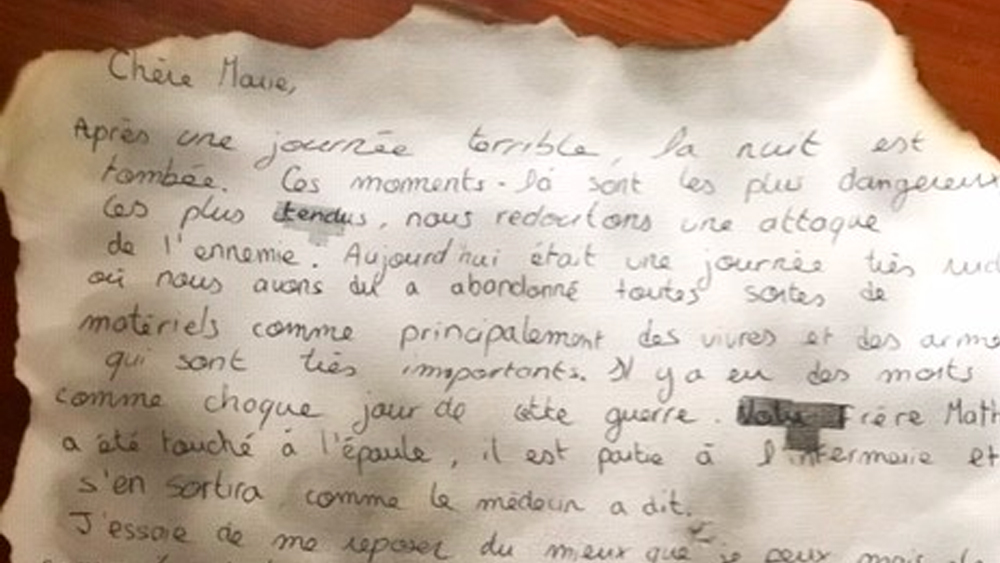 Chère Marie,
Après une journée terrible, la nuit est
tombée. Ces moments-là sont les plus dangereux
les plus tendus, nous redoutons une attaque
de l'ennemie. Aujourd'hui était une journée très
où nous avons dû a abandonné toutes sortes de
matériels comme principalement des vivres et des
qui sont très importants. Il y a eu des morts
comme chaque jour de cette guerre. Frère
a été touché à l'épaule, il est partie à l'infermerie et
s'en sortira comme le médecin a dit.
J'essaie de me reposer du mieux que je peux mais